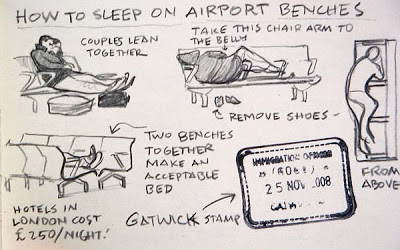 HOW TO SLEEP ON AIRPORT BENCHES
COUPLES LEAN
TOGETHER
TAKE THIS CHAIR ARM TO
THE BELLY
REMOVE SHOES
TWO BENCHES
TOGETHER
MAKE AN
ACCEPTABLE
BED
FROM
ABOVE
HOTELS IN
LONDON COST
£250/NIGHT!
GATWICK STAMP
IMMIGRATION OFFICER
25 NOV 008